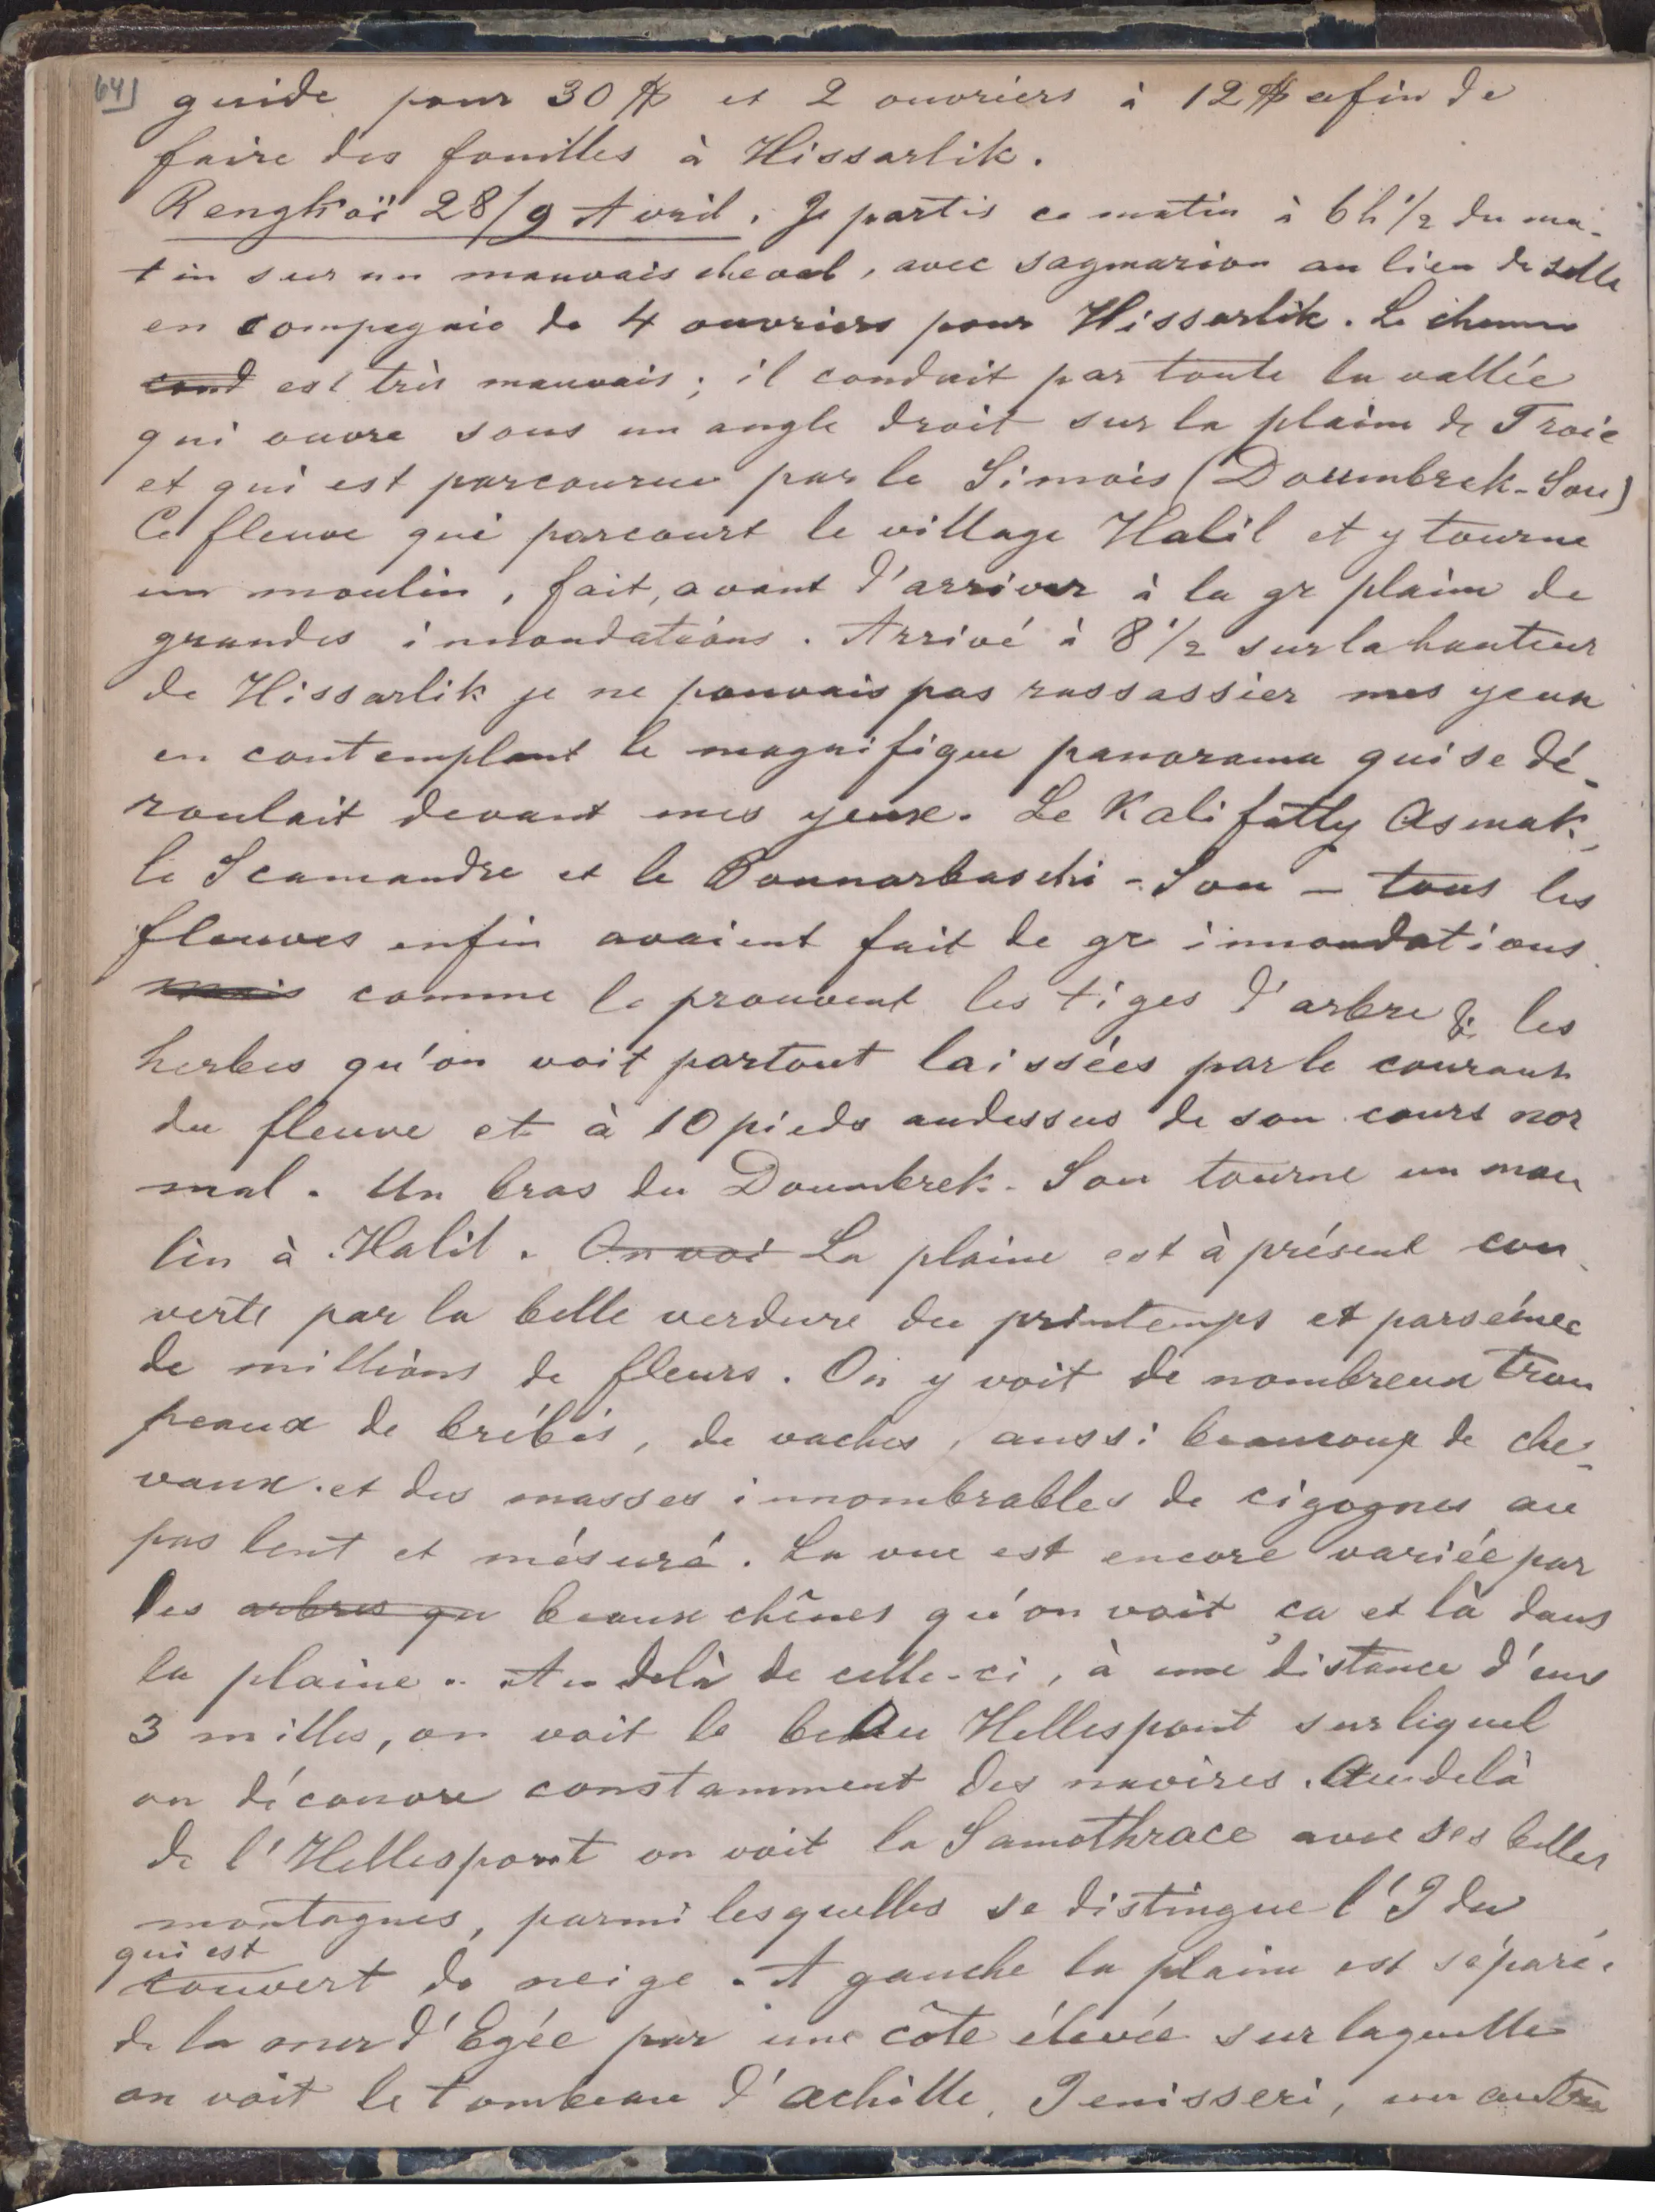 64]
guide pour 30 ₰ et 2 ouvriers à 12 ₰ afin de
faire des fouilles à Hissarlik.
Rengkoï 28/9 Avril. Je partis ce matin à 6h 1/2 du ma-
tin sur un mauvais cheval, avec sagmarion au lieu de selle
en compagnie de 4 ouvriers pour Hissarlik. Le chemin
cond est très mauvais; il conduit par toute la vallée
qui ouvre sous un angle droit sur la plaine de Troie
et qui est parcourue par le Simois (Doumbrek-Sou)
Ce fleuve qui parcourt le village Halil et y tourne
un moulin, fait, avant d'arriver à la gr plaine de
grandes innondations. Arrivé à 8 1/2 sur la hauteur
de Hissarlik je ne pouvais pas rassassier mes yeux
en contemplant le magnifique panorama qui se dé-
roulait devant mes yeux. Le Kalifatly Asmak,
le Scamandre et le Bounarbaschi-Sou – tous les
fleuves enfin avaient fait de gr innondations
mais comme le prouvent les tiges d'arbre & les
herbes qu'on voit partout laissées par le courant
du fleuve et à 10 pieds audessus de son cours nor
mal. Un bras du Doumbrek-Sou tourne un mou
lin à Halil. On voi La plaine est à présent cou
verte par la belle verdure du printemps et parsémée
de millions de fleurs. On y voit de nombreux trou
peaux de brébis, de vaches, aussi beaucoup de che-
vaux et des masses innombrables de cigognes au
pas lent et mésuré. La vue est encore variée par
les arbres qu beaux chênes qu'on voit ça et là dans
la plaine. Au delà de celle-ci, à une distance d'env
3 milles, on voit le beau Hellespont sur liquel
on découvre constamment des navires. Au delà
de l'Hellespont on voit la Samothrace avec ses belles
montagnes, parmi lesquelles se distingue l'Ida
qui est
couvert de neige. A gauche la plaine est séparée
de la mer d'Egée par une côte élevée sur laquelle
on voit le tombeau d'Achille, Jenisseri, un autre